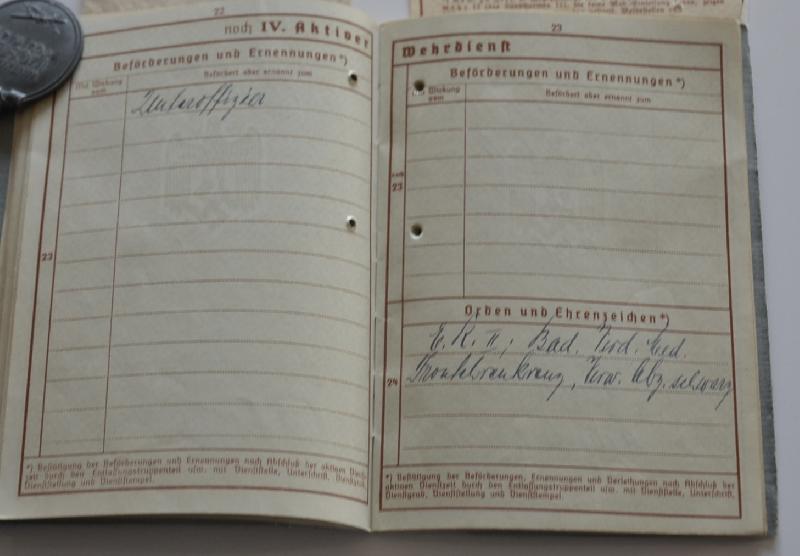 22
noch IV. Aktiver
Beförderungen und Ernennungen*)
Mit Wirkung vom
Befördert oder ernannt zum
Unteroffizier
23
*) Bestätigung der Beförderungen und Ernennungen nach Abschluß der aktiven Dienst-
zeit durch den Entlassungstruppenteil usw. mit Dienststelle, Unterschrift, Dienstgrad,
Dienststellung und Dienststempel.
23
Wehrdienst
Beförderungen und Ernennungen*)
Mit Wirkung vom
Befördert oder ernannt zum
noch
23
Orden und Ehrenzeichen*)
E. K. II; Bad. Verd. Med.
Frontkämpferkreuz, Verw. Abz. schwarz
24
*) Bestätigung der Beförderungen, Ernennungen und Verleihungen nach Abschluß der
aktiven Dienstzeit durch den Entlassungstruppenteil usw. mit Dienststelle, Unterschrift,
Dienstgrad, Dienststellung und Dienststempel.